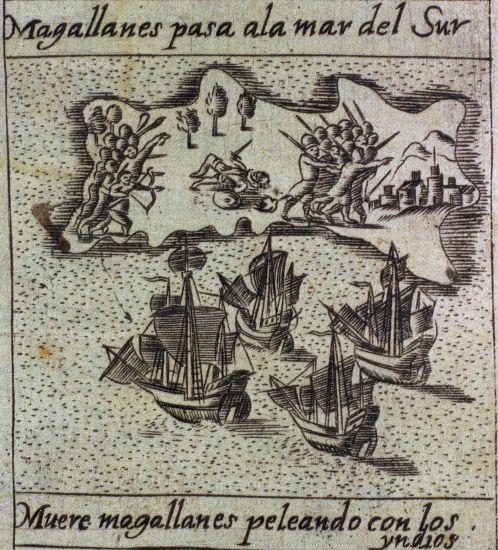 Magallanes pasa ala mar del Sur
Muere magallanes peleando con los
yndios